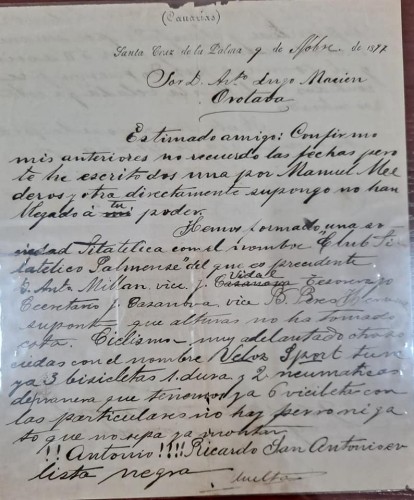 (Canarias)
Santa Cruz de la Palma 9 de Nobre. de 18
Sor D. Anto. Lugo Macien
Orotava
Estimado amigo: Confirmo
mis anteriores no recuerdo las fechas pero
te he escrito dos una por Manuel Me
deros y otra directamente supongo no han
llegado á mi tu poder.
Hemos formado una so
ciedad filatelica con el nombre "Club Fi
latelico Palmense" del que es precidente
D. Anto. Millan, vice J. Casanova Vidal Tesorero
Ecretaño J. Casanova, vice B. Peres
supont que alturas no ha tomado
cota. Ciclismo muy adelantado otra
ciedas con el nombre Veloz Sport tiene
ya 3 bisicletas 1. dura y 2 neumaticas
de manera que tenemos ya 6 vicicletas con
las particulares no hay perro ni ga
to que no sepa ya montar
!! Antonio !!!! Ricardo San Antonio en
lista negra
vuelta